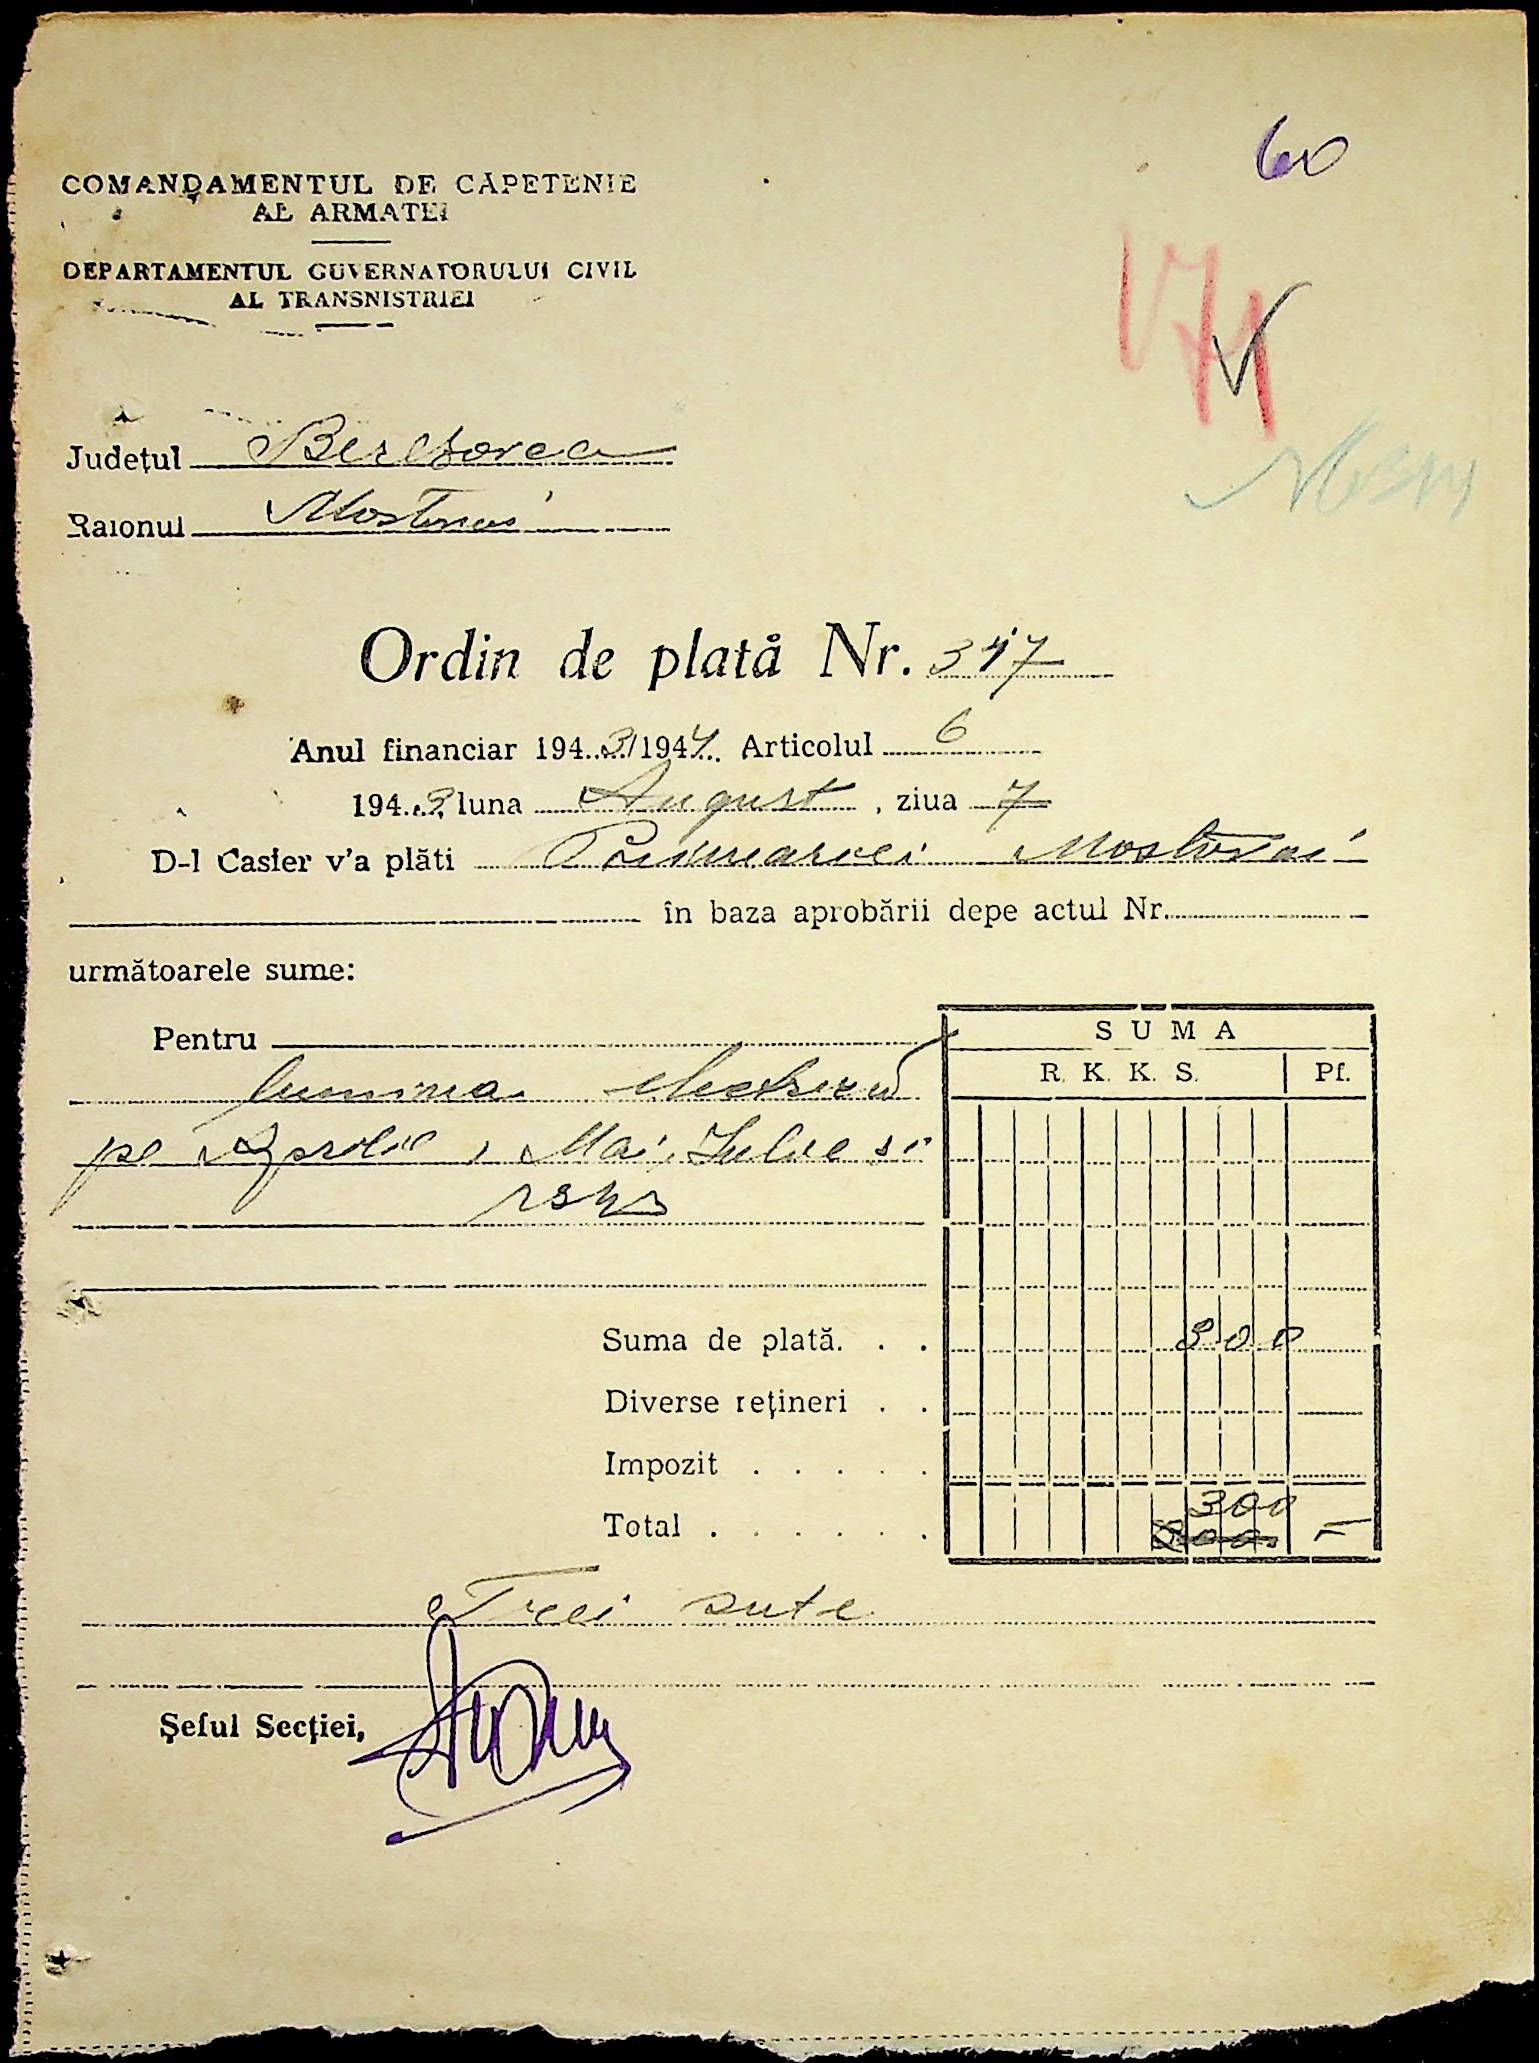 60
COMANDAMENTUL DE CAPETENIE
AL ARMATEI
DEPARTAMENTUL GUVERNATORULUI CIVIL
AL TRANSNISTRIEI
Județul Berezovca
Raionul Mostovoi
Ordin de plată Nr. 347
Anul financiar 1943/1944 Articolul 6
1943 luna August, ziua 7
D-l Casier v'a plăti Primariei Mostovoi
în baza aprobării depe actul Nr.
următoarele sume:
Pentru
lumina electrică
pe Aprilie, Mai, Iulie si
1943
SUMA
R. K. K. S. Pf.
Suma de plată. . . 300
Diverse rețineri . .
Impozit . . . . .
Total . . . . . . 300 —
Trei sute
Șeful Secției,